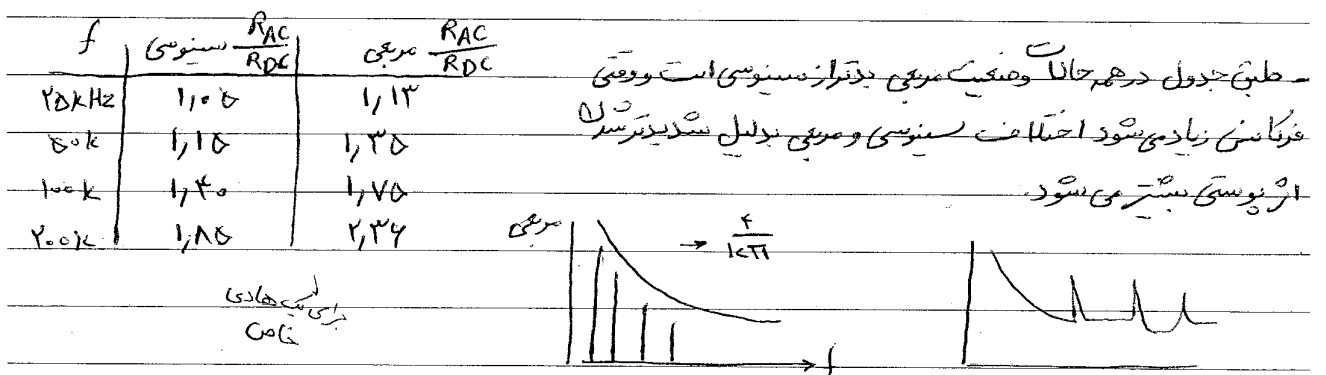 f | سینوسی RAC/RDC | مربعی RAC/RDC
۲۵kHz | ۱,۰۵ | ۱,۱۳
۵۰k | ۱,۱۵ | ۱,۳۵
۱۰۰k | ۱,۴۰ | ۱,۷۵
۲۰۰k | ۱,۸۵ | ۲,۳۶
برای یک هادی
خاص
- طبق جدول در همه حالات وضعیت مربعی بدتر از سینوسی است و وقتی
فرکانس زیاد می شود اختلاف سینوسی و مربعی بدلیل شدیدتر شدن
اثر پوستی بیشتر می شود.
مربعی
→ ۴/kπ
f